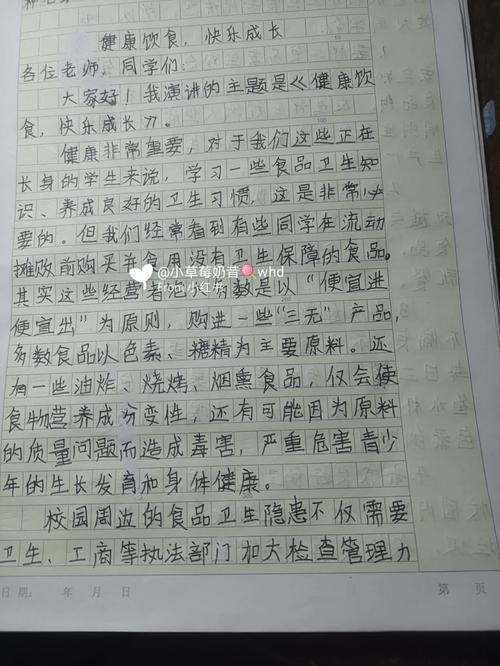 健康饮食，快乐成长
各位老师，同学们：
大家好！我演讲的主题是《健康饮
食，快乐成长》。
健康非常重要，对于我们这些正在
长身的学生来说，学习一些食品卫生知
识、养成良好的卫生习惯，这是非常必
要的。但我们经常看到有些同学在流动
摊贩前购买并食用没有卫生保障的食品。
@小草莓奶昔 whd
From 小红书
其实这些经营者绝大多数是以“便宜进
便宜出”为原则，购进一些“三无”产品，
多数食品以色素、糖精为主要原料。还
有一些油炸、烧烤、烟熏食品，仅会使
食物营养成份变性，还有可能因为原料
的质量问题而造成毒害，严重危害青少
年的生长发育和身体健康。
校园周边的食品卫生隐患不仅需要
卫生、工商等执法部门加大检查管理力
日期： 年 月 日 第 页